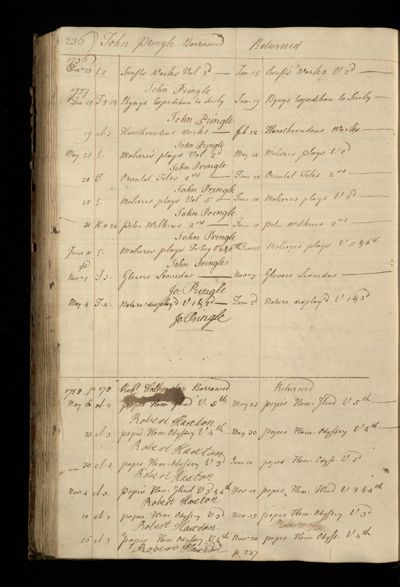 236 John Pringle Borrowed Returned
1756
Decr 13 E.2. Swifts Works Vol 2d — Jan 15 Swifts Works V 2d
John Pringle
1757
Jan 15 I.3.14 Byngs Expedition to Sicily — Jan 19 Byngs Expedition to Sicily —
John Pringle
19 A.3 Hawthorndens works — feb 12 Hawthorndens Works
John Pringle
May 23 E. Molieres plays Vol 2d May 28 Molieres plays V 2d
John Pringle
28 F. Oriental Tales 2 vols June Oriental Tales 2 vols
John Pringle
28 E. Molieres plays Vol 3d June Molieres plays V 3d
John Pringle
31 K.2.24 peter Wilkins 2 vols June peter Wilkins 2 vols
John Pringle
June E. Molieres plays V 5 & 6th Molieres plays V 5 & 6th
John Pringle
Novr I.3. Glovers Leonidas — Novr 9 Glovers Leonidas —
Jo: Pringle
May 4 I.4. Nature display'd V 1 & 2d June 2d Nature display'd V 1 & 2d
Jo: Pringle
1758 p 178 Robt Borrowed Returned
May 16 A.3 popes Hom: Iliad V. 5th May 23 popes Hom: Iliad V 5th
Robert Hawton
23 A.3 popes Hom: Odyssey V 4th May 30 popes Hom: Odyssey V 4th
Robert Hawton
30 A.3 popes Hom: Odyssey V 3d June popes Hom: Odysse V 3d
Robert Hawton
Novr 4 A.3. popes Hom: Iliad V 3 & 4th Novr 10 popes Hom: Iliad V 3 & 4th
Robert Hawton
10 A.3 popes Hom: Odyssey V 3d Novr 15 popes Hom: Odyssey V 3d
Robert Hawton
15 A.3 popes Hom: Odyssey V 4th Novr 20 popes Hom: Odyss. V 4th
Robert Hawton p. 237